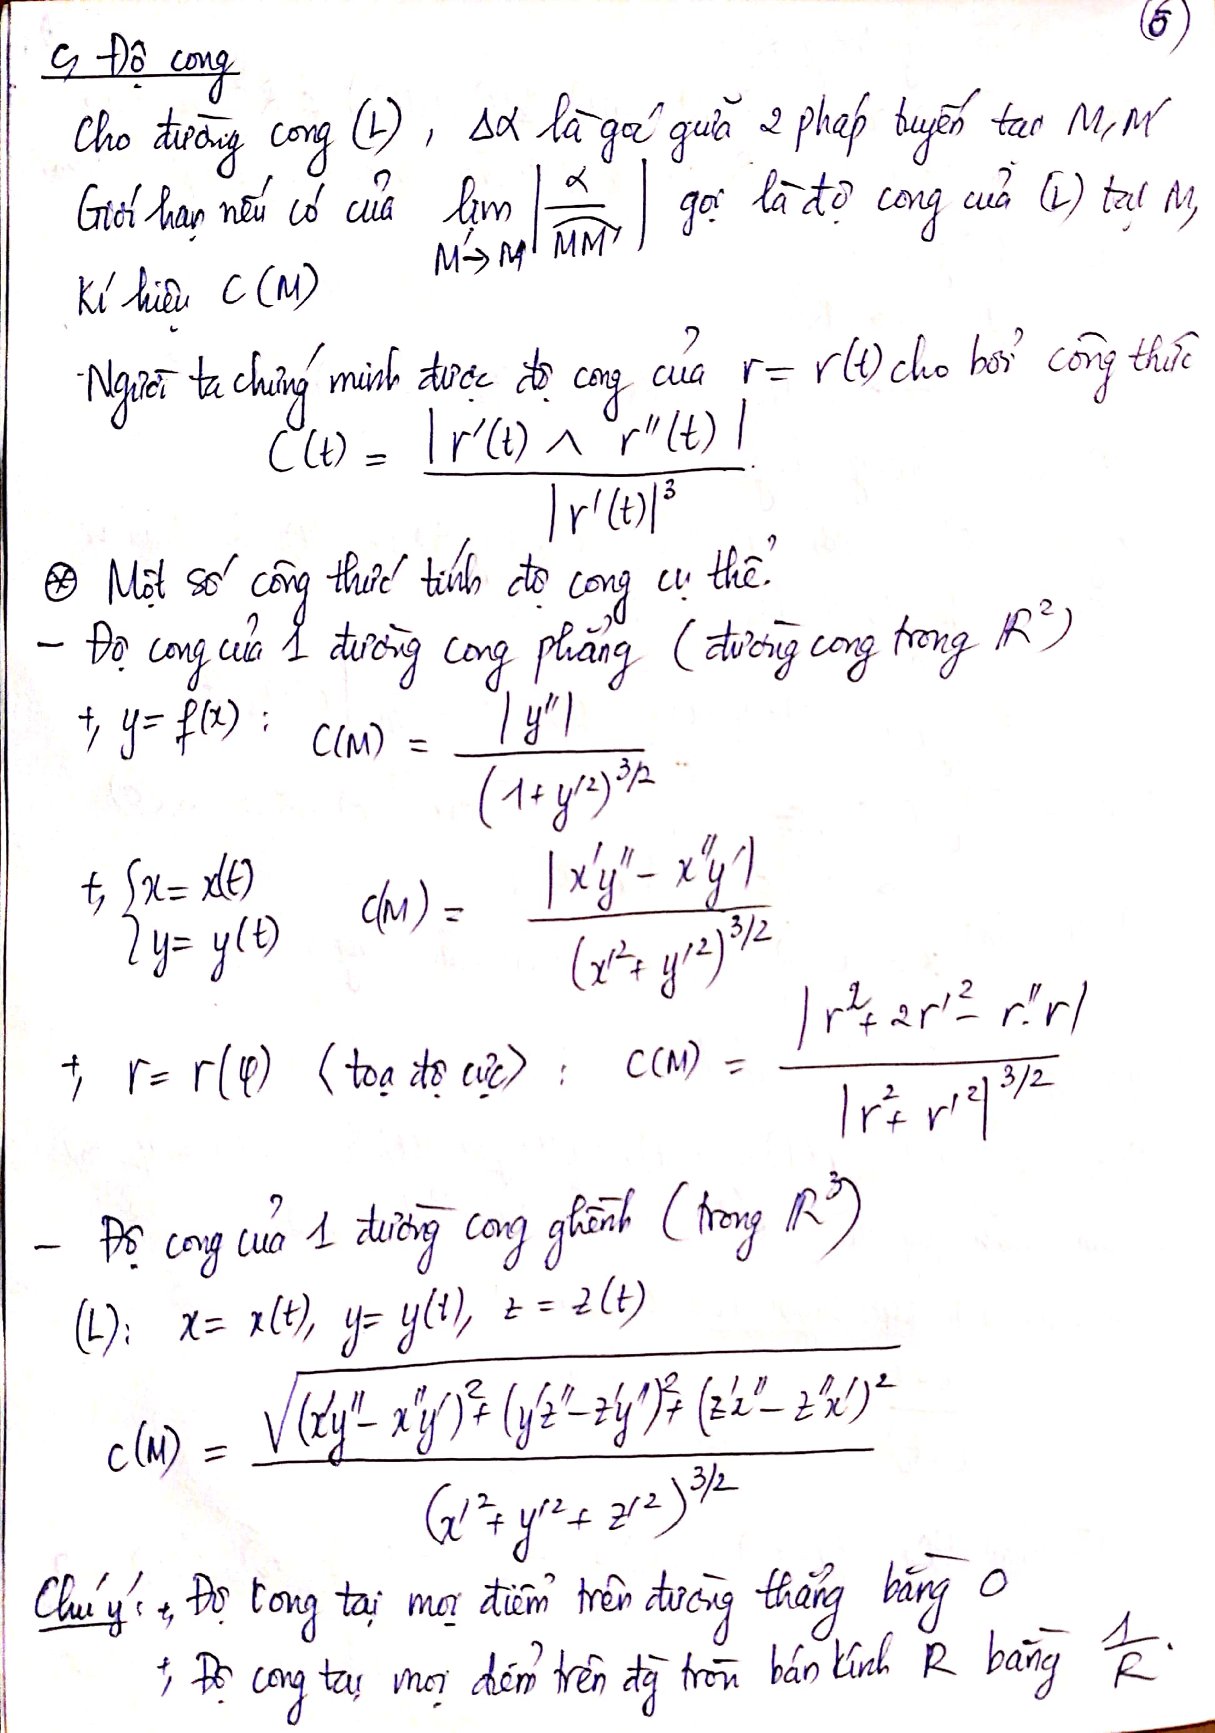 (5)
c, Độ cong
Cho đường cong (L), Δα là góc giữa 2 pháp tuyến tại M, M'
Giới hạn nếu có của lim_{M'→M} |α / MM'| gọi là độ cong của (L) tại M,
Kí hiệu C(M)
-Người ta chứng minh được độ cong của r = r(t) cho bởi công thức
C(t) = |r'(t) ∧ r''(t)| / |r'(t)|³
⊛ Một số công thức tính độ cong cụ thể.
- Độ cong của 1 đường cong phẳng (đường cong trong ℝ²)
+, y = f(x) : C(M) = |y''| / (1 + y'²)^{3/2}
+, { x = x(t) { y = y(t) C(M) = |x'y'' - x''y'| / (x'² + y'²)^{3/2}
+, r = r(φ) (toạ độ cực) : C(M) = |r² + 2r'² - r''.r| / |r² + r'²|^{3/2}
- Độ cong của 1 đường cong ghềnh (trong ℝ³)
(L): x = x(t), y = y(t), z = z(t)
C(M) = √((x'y'' - x''y')² + (y'z'' - z'y'')² + (z'x'' - z''x')²) / (x'² + y'² + z'²)^{3/2}
Chú ý: +, Độ cong tại mọi điểm trên đường thẳng bằng 0
+, Độ cong tại mọi điểm trên đg tròn bán kính R bằng 1/R.